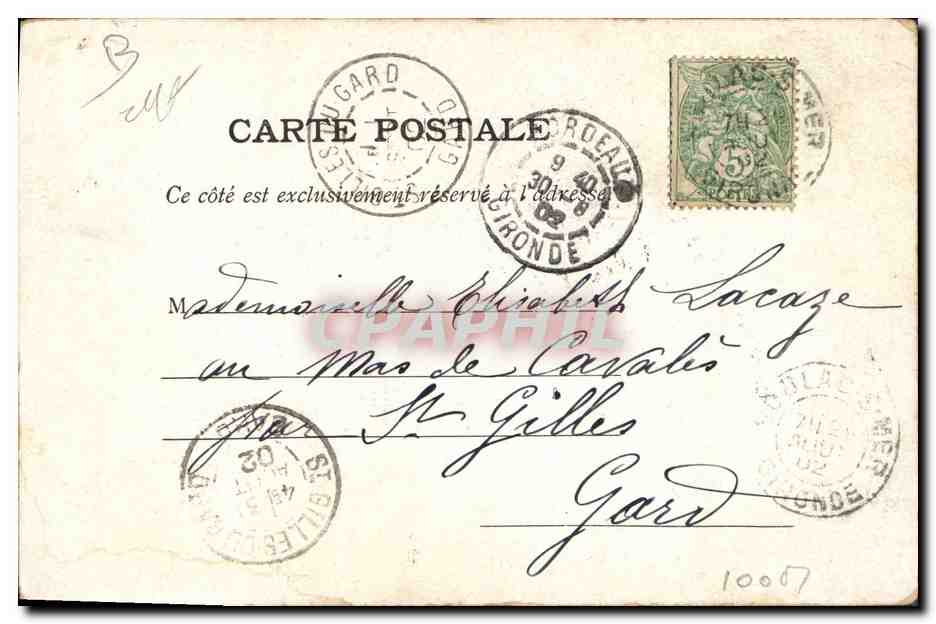 B
ST GILLES DU GARD GARD
CARTE POSTALE
BORDEAUX
9 40
30 8
02
GIRONDE
SOULAC S-MER
5
GIRONDE
Ce côté est exclusivement réservé à l'adresse
Mademoiselle Elisabeth Lacaze
CPAPHIL
au Mas de Cavalès
par St Gilles
Gard
SOULAC S-MER
02
GIRONDE
ST GILLES DU GARD
02